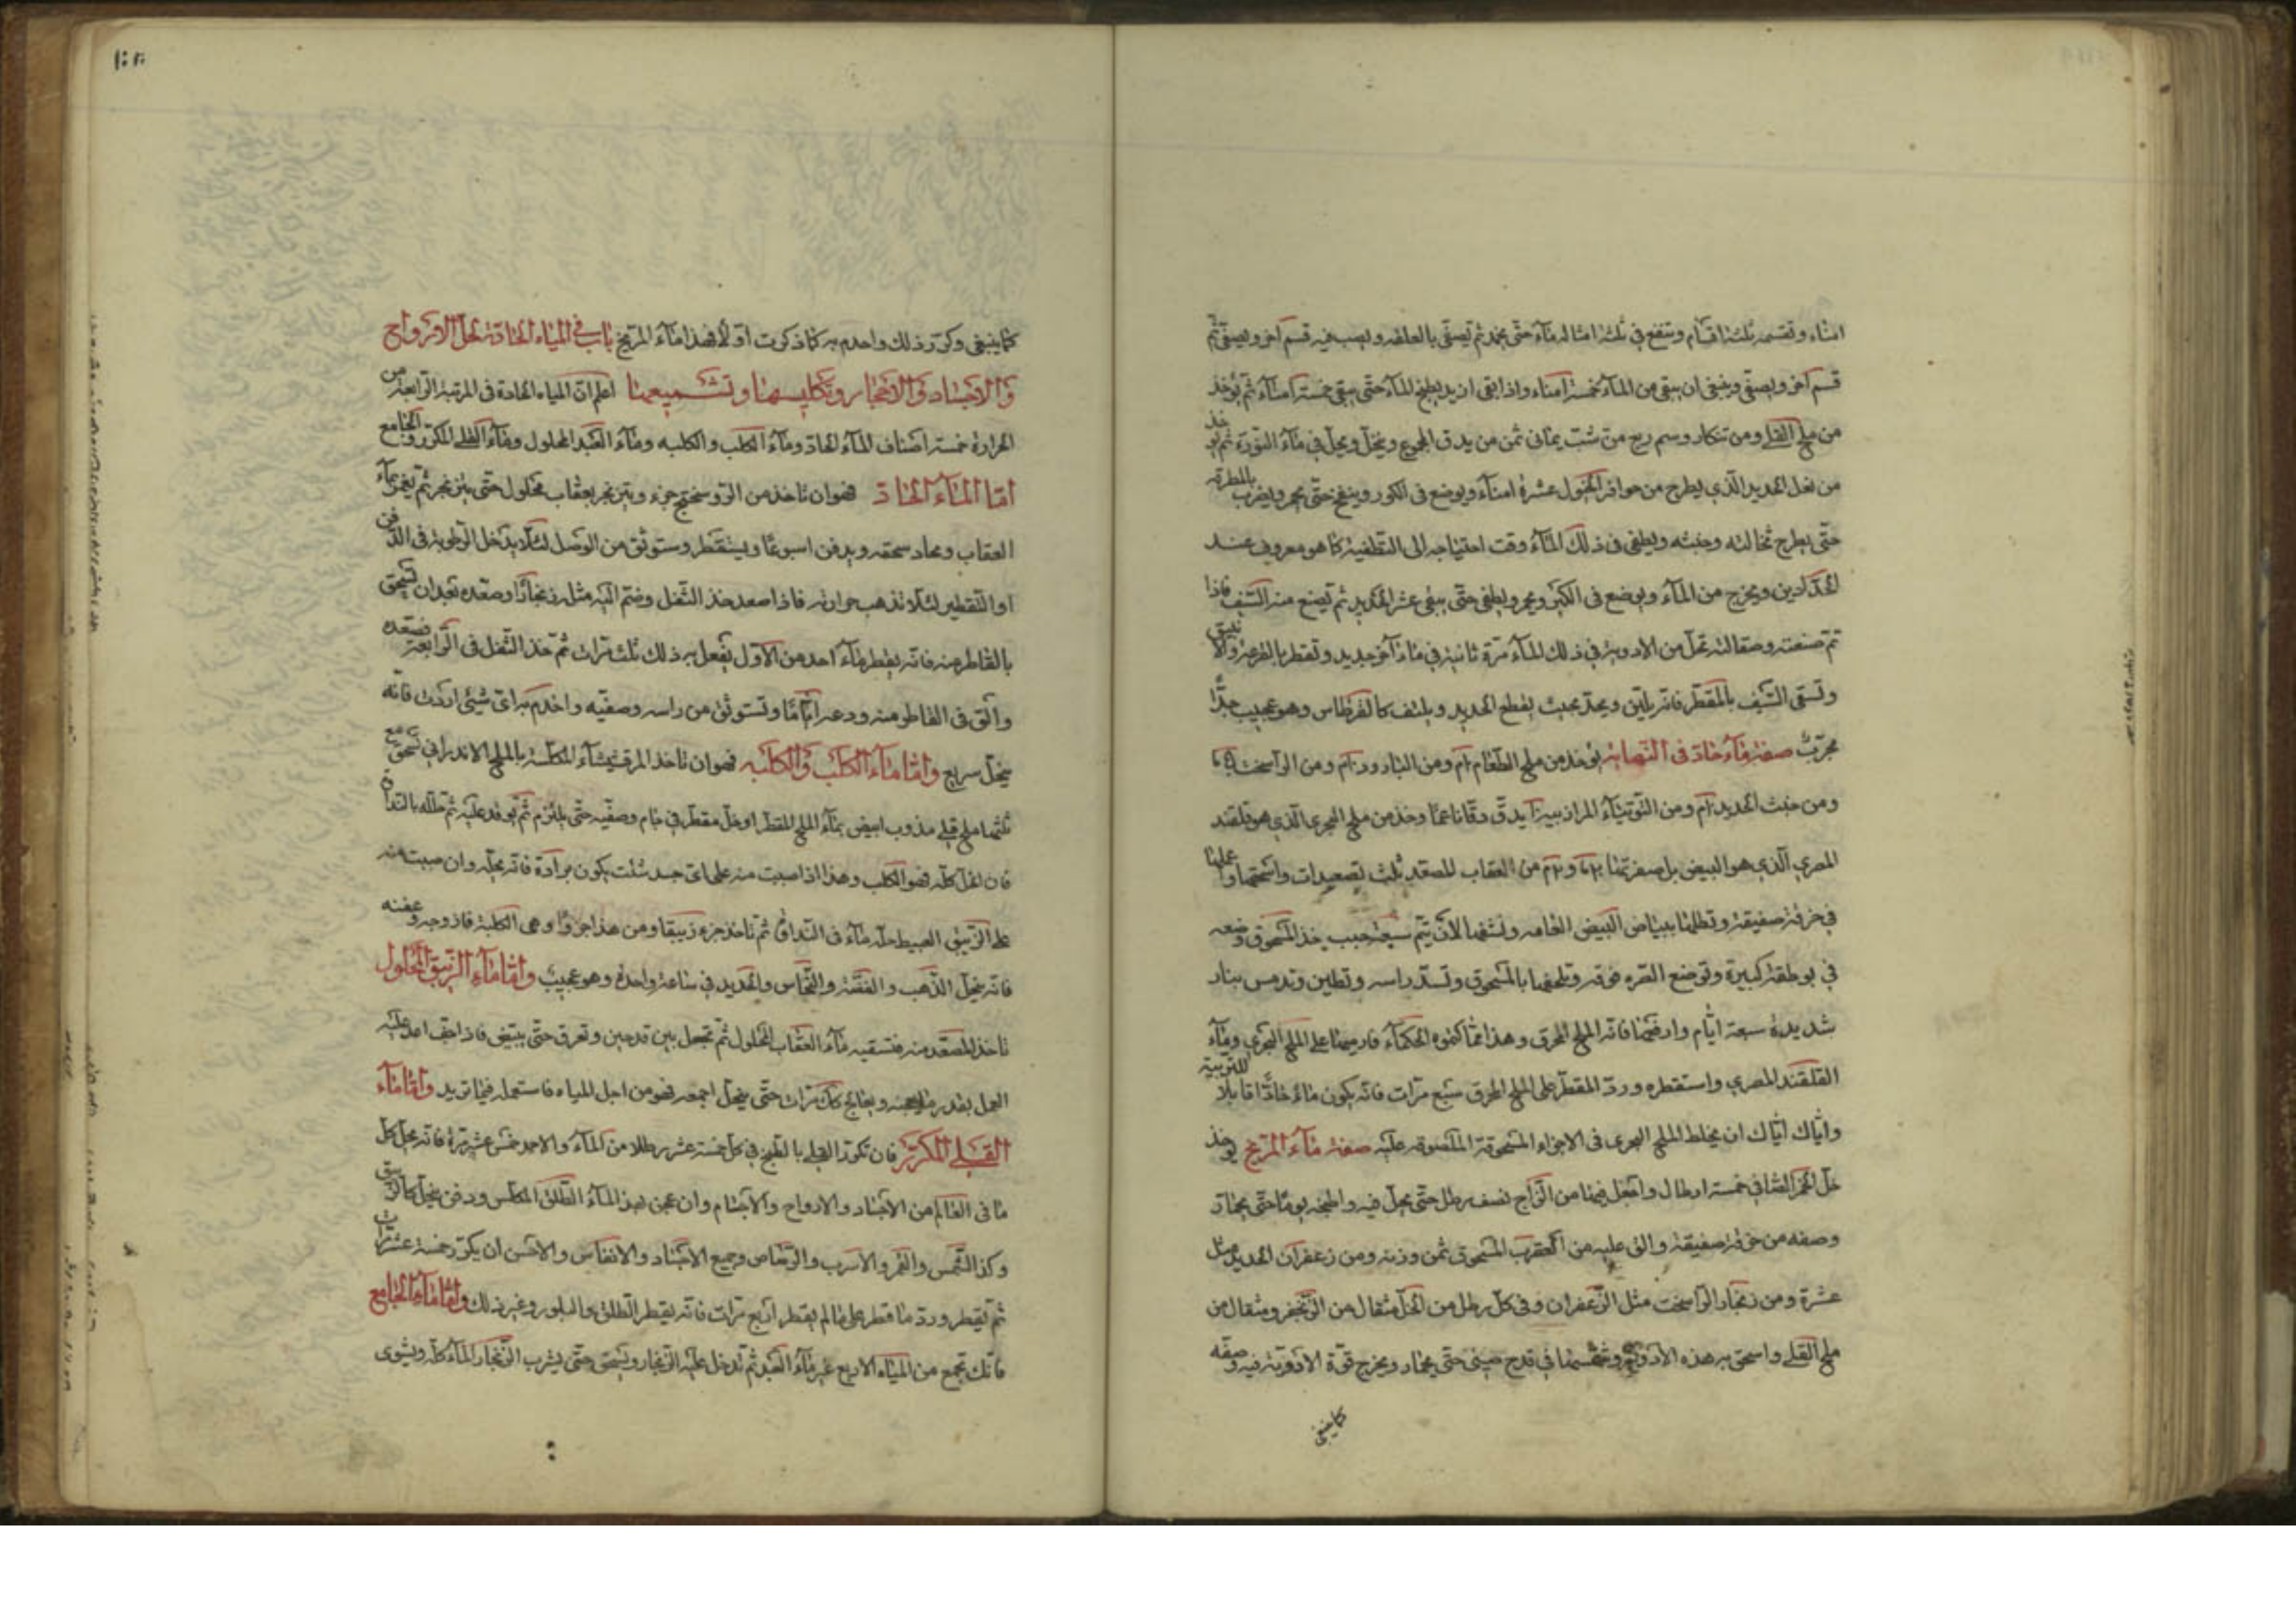 امناء وتقسمه ثلثة اقسام وتنقع في ثلثة امثاله ماء حتى يجمد ثم يصفى بالعلقه ويصب فيه قسم آخر ويصفى ثم
قسم آخر ويصفى وينبغي ان يبقى من الماء خمسة امناء واذا بقى ازيد يطبخ الماء حتى يبقى خمسة امناء ثم يؤخذ
من ملح القلي ومن تنكار وسم ربع من شب يمانى ثمن من يدق المجموع وينخل ويحل في ماء النورة ثم يؤخذ
من نعل الحديد الذي يطرح من حوافر الخيول عشرة امناء ويوضع في الكور وينفخ حتى يحمر ويضرب بالمطرقة
حتى يطرح نخالته وخبثه ويطفى في ذلك الماء وقت احتياجه الى التطفية كما هو معروف عند
الحدادين ويخرج من الماء ويوضع في الكير ويحمر ويطفى حتى يبقى عشر الحديد ثم يصنع منه السيف فاذا
تم صنعته وصقالته تحل من الادوية في ذلك الماء مرة ثانية في ماء آخر جديد وتقطر بالقرعة والانبيق
وتسقى السيف بالمقطر فانه يلين ويحد بحيث يقطع الحديد ويلتف كالقرطاس وهو عجيب جدا
مجرب صفة ماء حاد في النصابة يؤخذ من ملح الطعام ومن البارود ومن الراسخت
ومن خبث الحديد ومن التوتياء المرازبي يدق دقا ناعما وخذ من ملح البحري الذي هو قلقند
المصري الذي هو البيض بل صفرتها من العقاب المصعد ثلث تصعيدات واسحقها واعملها
في خرقة صفيقة وتطليها ببياض البيض الخامه ونشفها الان يتم سبعة حبب خذ المسحوق وضعه
في بوطقة كبيرة وتوضع القره فوقه وتلحفها بالمسحوق وتسد راسه وتطين وتدمس بنار
شديدة سبعة ايام وارفعها فانه الملح المحرق وهذا مما كتموه الحكماء فارميها على الملح البحري وماء
القلقند المصري واستقطره ورد المقطر على الملح المحرق سبع مرات فانه يكون ماء حادا قابلا للتربية
واياك اياك ان يخلط الملح البحري في الاجزاء المسحوقة الملصوقه عليه صفة ماء المريخ يؤخذ
خل الخمر الصافي خمسة ارطال واجعل فيها من الزاج نصف رطل حتى يحل فيه واطبخه يوما حتى يحتاد
وصفه من خرقة صفيقة والق عليه من العقرب المسحوق ثمن وزنه ومن زعفران الحديد مثل
عشرة ومن زنجار الراسخت مثل الزعفران وفي كل رطل من الخل مثقال من الزنجفر ومثقال من
ملح القلي واسحق به هذه الادوية وشمسها في قدح صيني حتى يحتاد ويخرج قوة الادوية فيه وصفه
كما ينبغي
كما ينبغي وكرر ذلك واخدم به كما ذكرت اولا فهذا ماء المريخ باب في المياه الحادة لحل الارواح
والاجساد والاحجار وتكليسها وتشميعها اعلم ان المياه الحادة في المرتبة الرابعة من
الحرارة خمسة اصناف الماء الحاد وماء الكلب والكلبه وماء العبد المحلول وماء القلي المكرر والجامع
اما الماء الحاد فهو ان تاخذ من الروسختج جزء ويتزنجر بعقاب محلول حتى يتزنجر ثم يغمر بماء
العقاب ويعاد سحقه ويدفن اسبوعا ويستقطر وستوثق من الوصل لئلا يدخل الرطوبة في الدفن
او التقطير لئلا تذهب حرارته فاذا صعد خذ الثفل وضم اليه مثل زنجارا وصعده بعد ان تسحق
بالقاطر منه فانه يقطر ماء احد من الاول يفعل به ذلك ثلث مرات ثم خذ الثفل في الرابعة فصعده
والق في القاطر منه ودعه اياما وتستوثق من راسه وصفيه واخدم به اى شيئ اردت فانه
ينحل سريع واما ماء الكلب والكلبه فهو ان تاخذ المرقشيثاء المكلسة بالملح الاندراني تسحق مع
ثلثها ملح قلي مذوب ابيض بماء الملح المقطر او خل مقطر في جام وصفيه حتى يلتزم ثم يوقد عليه ثم حلله بالنداوة
فان انحل كله فهو الكلب وهذا اذا صببت منه على اى جسد شئت يكون برادة فانه يحله وان صببت منه
على الزيبق العبيط حله ماء في النداوة ثم تاخذ جزء زيبقا ومن هذا جزوا وهى الكلبة فازوجه وعفنه
فانه ينحل الذهب والفضة والنحاس والحديد في ساعة واحدة وهو عجيب واما ماء الزيبق المحلول
تاخذ المصعد منه فتسقيه ماء العقاب المحلول ثم تجعل بين قدحين وتعرق حتى يبتقى فاذا جف اعد عليه
العمل بقدر ما يعجنه ويعالج كك مرات حتى ينحل اجمعه فهو من اجل المياه فاستعمله فيما تريد واما ماء
القلي المكرر فان تكرر القلي بالطبخ في كل خمسة عشر رطلا من الماء والاحد خمس عشر مرة فانه يحل كل
ما في العالم من الاجساد والارواح والاجسام وان عجن بهذا الماء الطلق المكلس ودفن ينحل كالزيبق
وكذا الشمس والقمر والاسرب والرصاص وجميع الاجساد والانفاس والاحسن ان يكرر خمسة عشر مرات
ثم يقطر ورد ما قطر على ما لم يقطر اربع مرات فانه يقطر الطلق والبلور وغير ذلك واما ماء الجامع
فانك تجمع من المياه الاربع غير ماء العبد ثم تدخل عليه الزنجار ويسحق حتى يشرب الزنجار الماء كله ويشوى